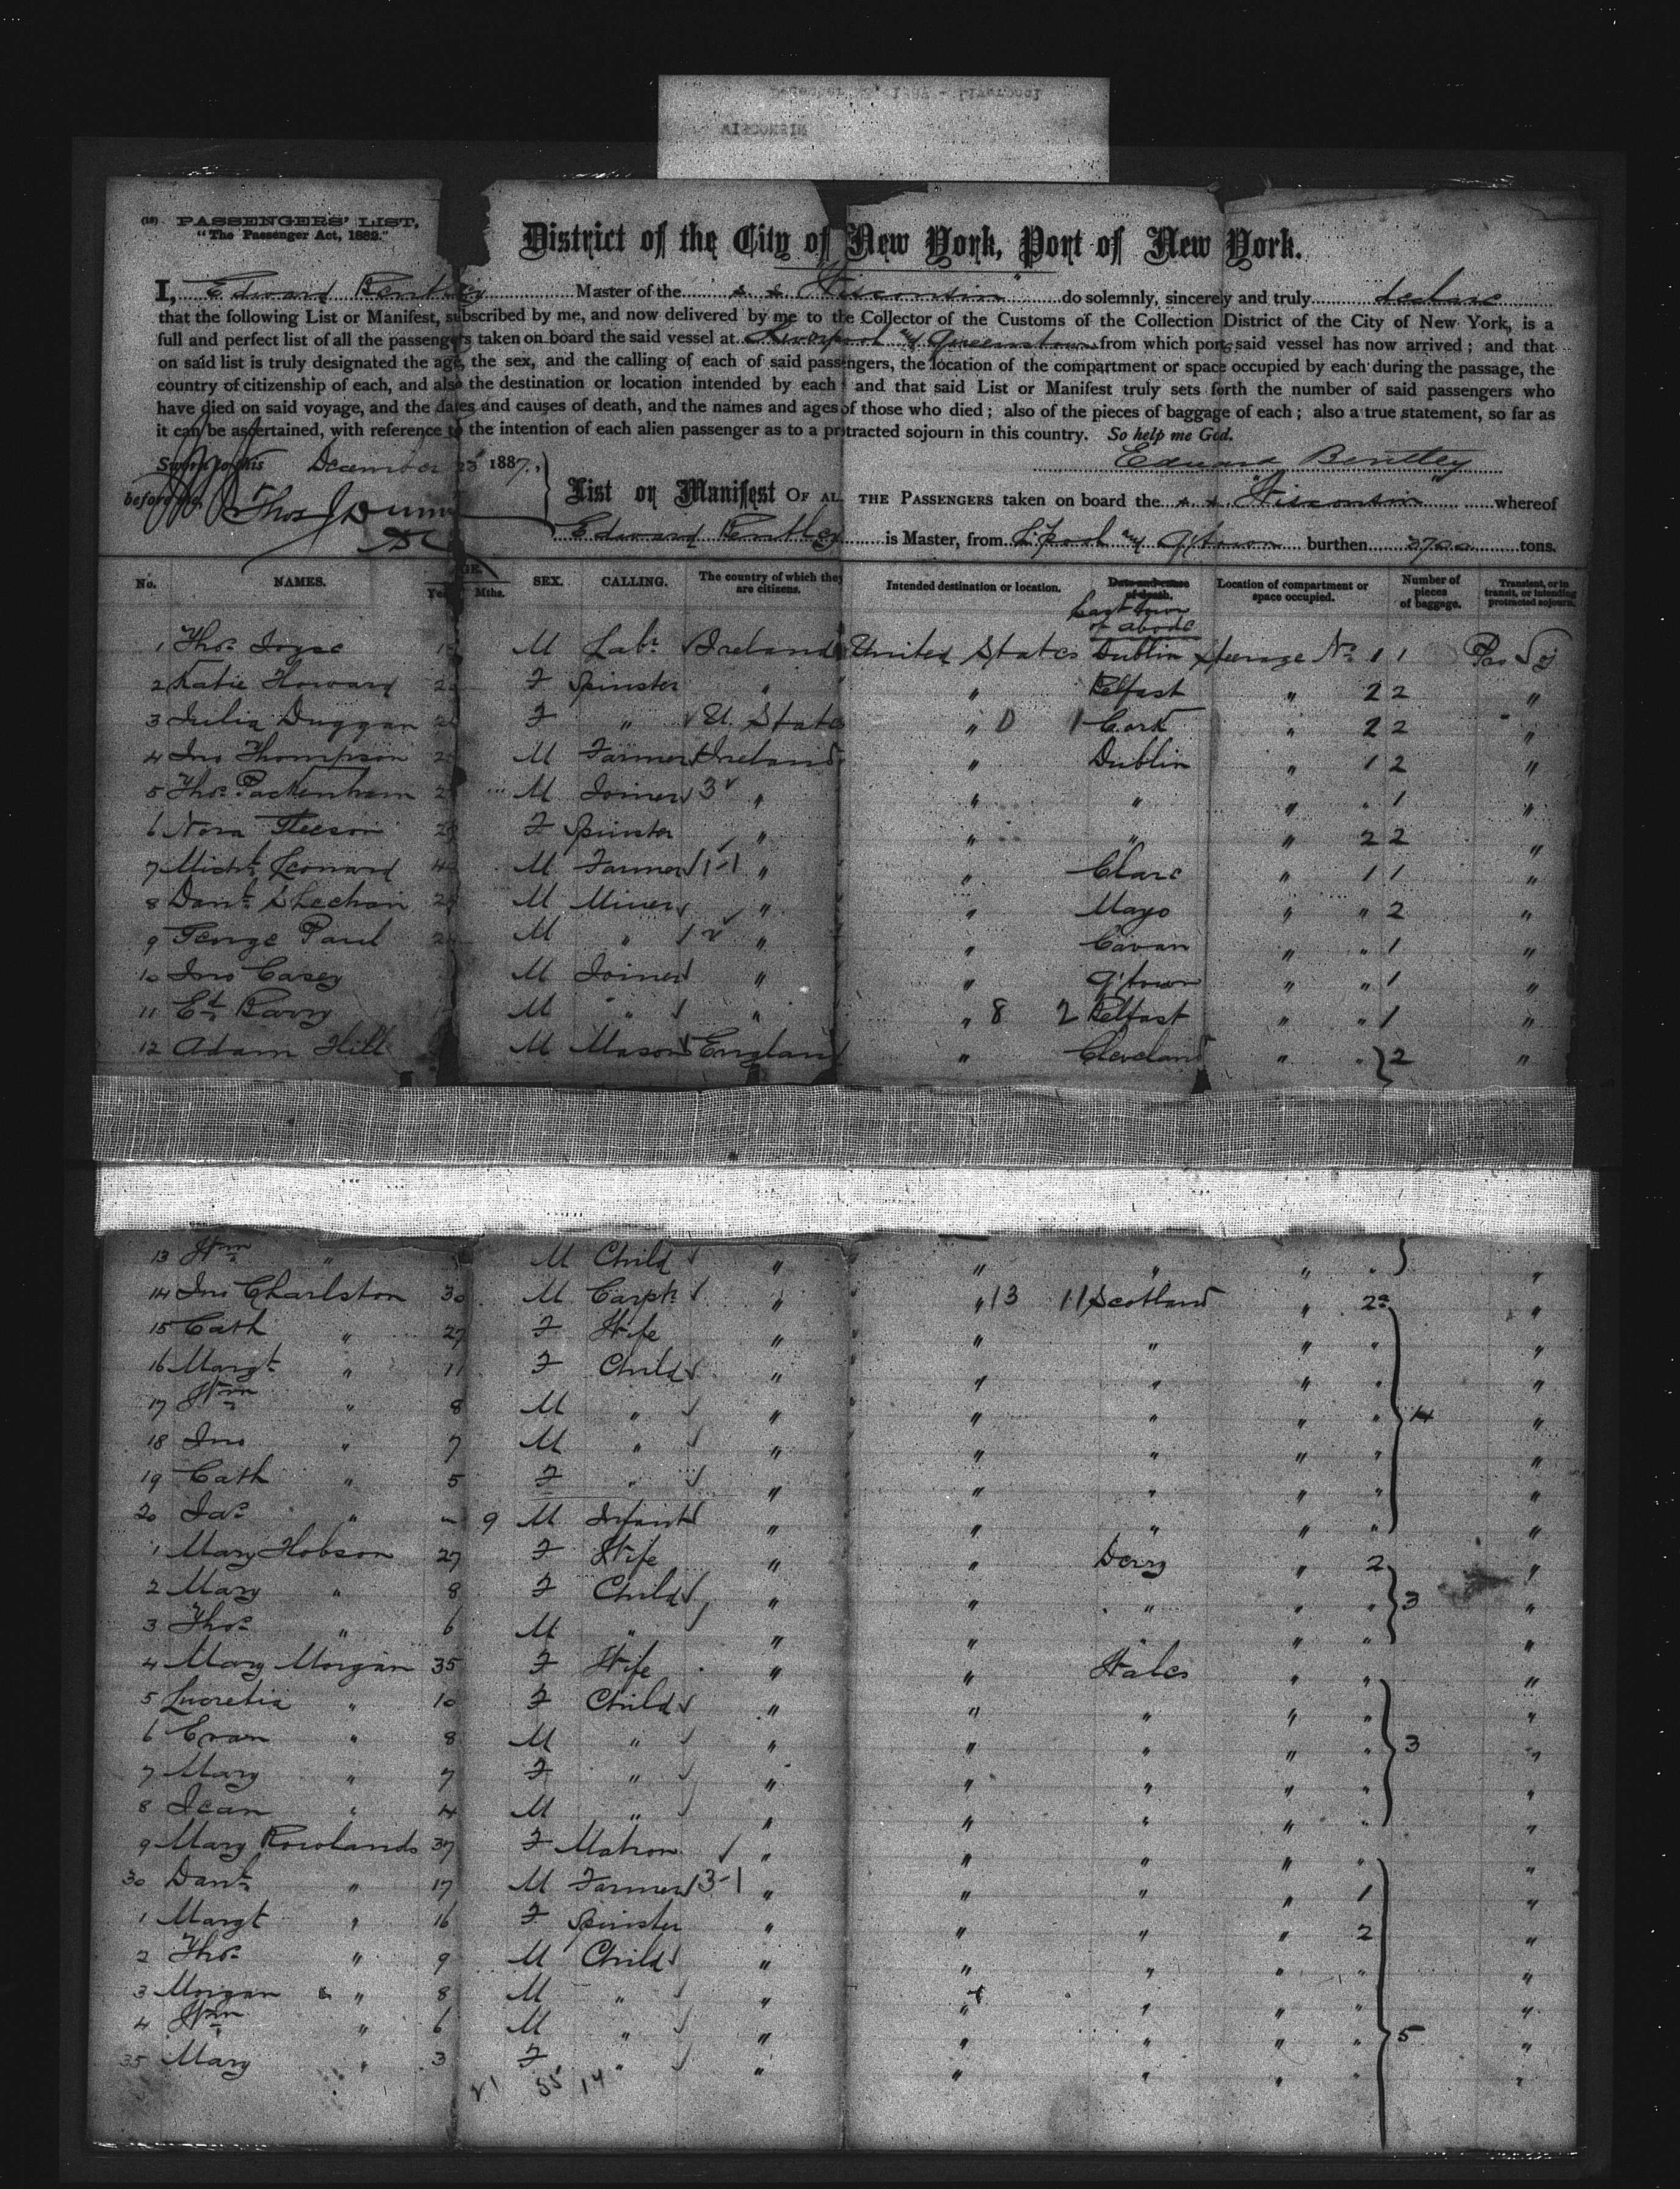 WISCONSIN
(18) PASSENGERS' LIST,
"The Passenger Act, 1882."
District of the City of New York, Port of New York.
I, Edward Bentley Master of the S. S. "Wisconsin" do solemnly, sincerely and truly declare
that the following List or Manifest, subscribed by me, and now delivered by me to the Collector of the Customs of the Collection District of the City of New York, is a
full and perfect list of all the passengers taken on board the said vessel at Liverpool and Queenstown from which port said vessel has now arrived; and that
on said list is truly designated the age, the sex, and the calling of each of said passengers, the location of the compartment or space occupied by each during the passage, the
country of citizenship of each, and also the destination or location intended by each; and that said List or Manifest truly sets forth the number of said passengers who
have died on said voyage, and the dates and causes of death, and the names and ages of those who died; also of the pieces of baggage of each; also a true statement, so far as
it can be ascertained, with reference to the intention of each alien passenger as to a protracted sojourn in this country. So help me God.
Sworn to this December 23 1887.
Edward Bentley
before me Thos J Dunn
List or Manifest OF ALL THE PASSENGERS taken on board the S. S. "Wisconsin" whereof
Edward Bentley is Master, from L'pool and Q'town burthen 3700 tons.
No. NAMES. AGE. Years Mths. SEX. CALLING. The country of which they are citizens. Intended destination or location. Date and cause of death. Last town of abode Location of compartment or space occupied. Number of pieces of baggage. Transient, or in transit, or intending protracted sojourn.
1 Thos. Joyce M Labr. Ireland United States Dublin Steerage No. 1 1 Pro Sj
2 Katie Howard F Spinster " " Belfast " 2 2 "
3 Julia Duggan F " U. States " 0 1 Cork " 2 2 "
4 Jno Thompson M Farmer Ireland " Dublin " 1 2 "
5 Thos. Packenham M Joiner 3 " " " " " 1 "
6 Nora Fleeson F Spinster " " " " 2 2 "
7 Michl. Leonard M Farmer 1-1 " " Clare " 1 1 "
8 Danl. Sheehan M Miner " " Mayo " " 2 "
9 George Paul M " " " Cavan " " 1 "
10 Jno Casey M Joiner " " Q'town " " 1 "
11 Ed. Barry M " " " 8 2 Belfast " " 1 "
12 Adam Hill M Mason England " Cleveland " " 2 "
13 Wm " M Child " " " " " "
14 Jno Charlston 30 M Carptr " " 13 11 Scotland " 2 "
15 Cath " 27 F Wife " " " " "
16 Margt " 11 F Child " " " " " "
17 Wm " 8 M " " " " " " 4 "
18 Jno " 7 M " " " " " " "
19 Cath " 5 F " " " " " " "
20 Jas " 9 M Infant " " " " " "
1 Mary Hobson 27 F Wife " " Derry " 2 "
2 Mary " 8 F Child " " " " " 3 "
3 Thos. " 6 M " " " " " " "
4 Mary Morgan 35 F Wife " " Wales " " "
5 Lucretia " 10 F Child " " " " " "
6 Evan " 8 M " " " " " " 3 "
7 Mary " 7 F " " " " " " "
8 Jean " 4 M " " " " " " "
9 Mary Rowlands 37 F Matron " " " " " "
30 Danl. " 17 M Farmer 3-1 " " " " 1 "
1 Margt " 16 F Spinster " " " " 2 "
2 Thos. " 9 M Child " " " " " "
3 Morgan " 8 M " " " " " " "
4 Wm " 6 M " " " " " " 5 "
35 Mary " 3 F " " " " " " "
21 35 14